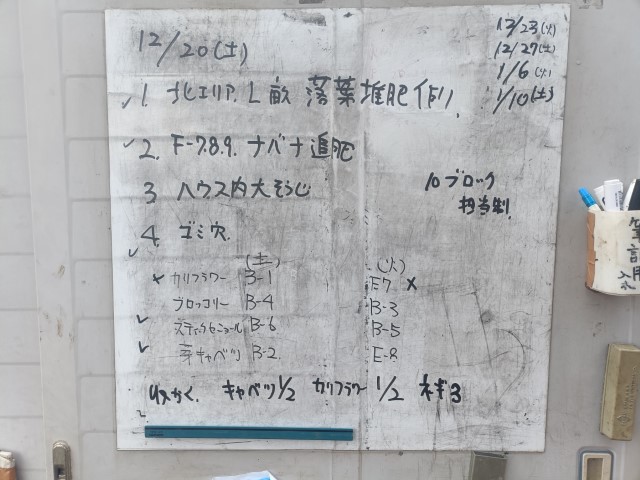 12/20(土)
12/23(火)
12/27(土)
1/6(火)
1/10(土)
✓1. 北エリア. L畝 落葉堆肥作り.
✓2. F-7.8.9. ナバナ追肥
3 ハウス内大そうじ
10ブロック
担当制.
4. ゴミ穴.
✓ (土) (火)
× カリフラワー B-1 E7 ×
ブロッコリー B-4 B-3
✓ スティックセニョール B-6 B-5
✓ 芽キャベツ B-2 E-8
收かく. キャベツ1/2 カリフラワー 1/2 ネギ3
筆
記
用
入れ